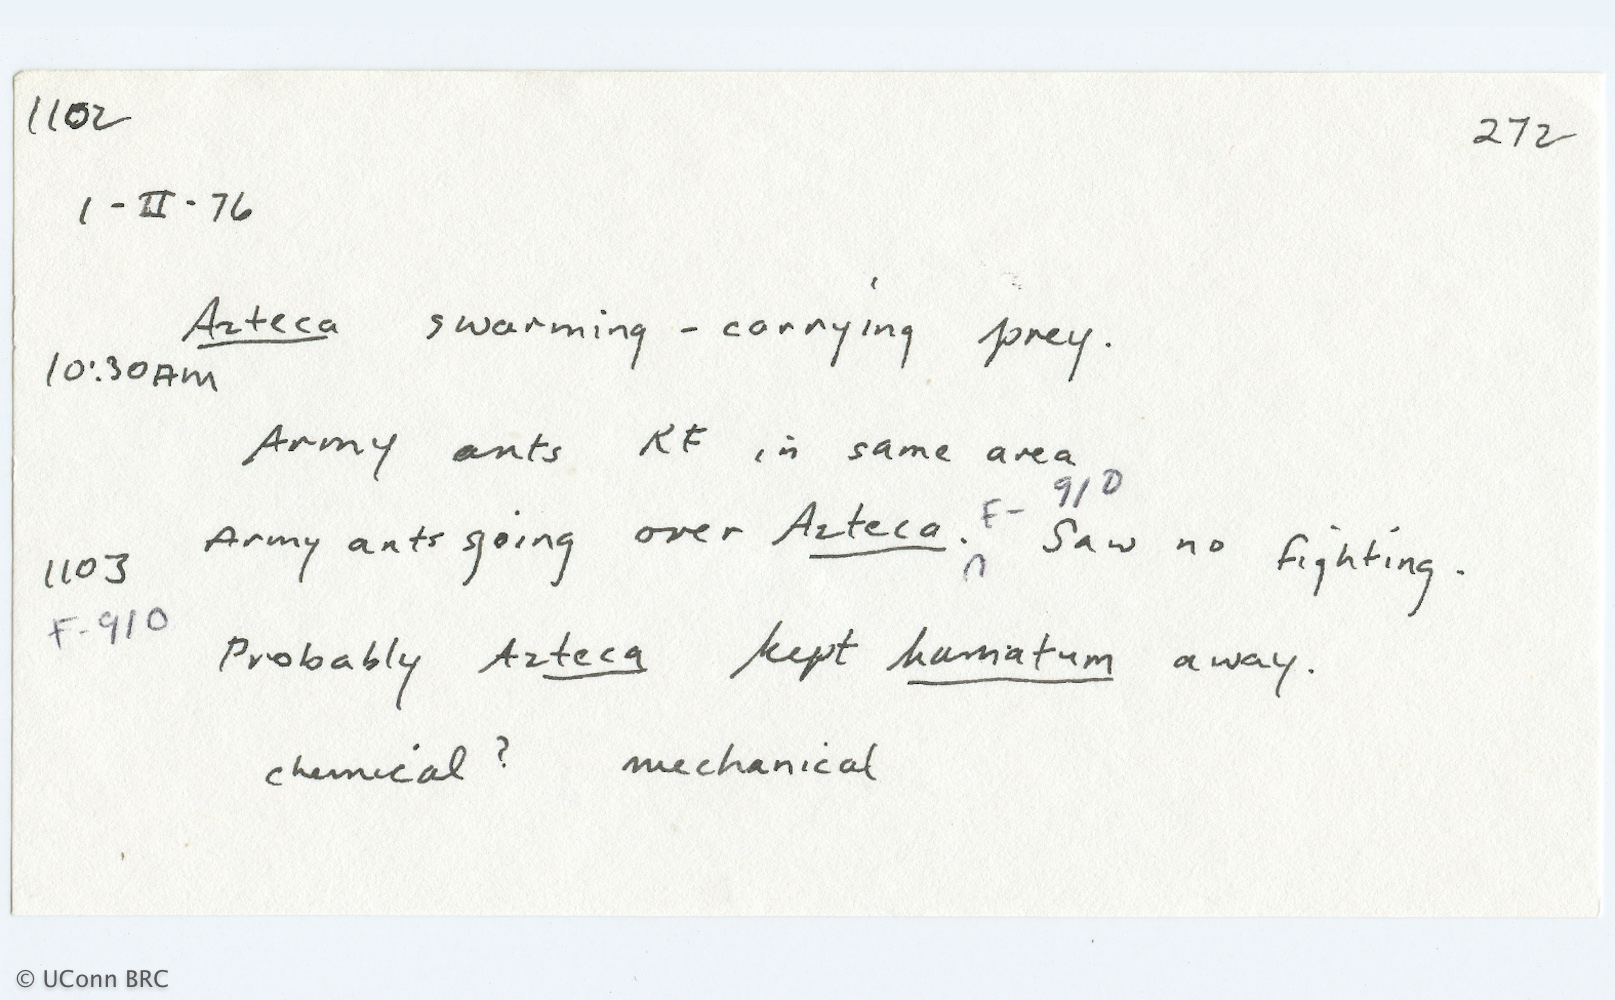 1102
272
1-II-76
Azteca swarming - carrying prey.
10:30AM
Army ants RE in same area
Army ants going over Azteca. F-910 Saw no fighting.
1103
F-910
Probably Azteca kept hamatum away.
chemical? mechanical
© UConn BRC